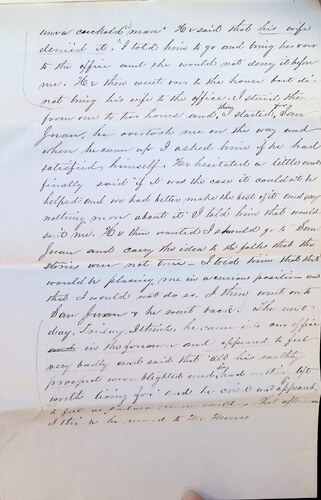 a cuckold man" He said that his wife
denied it; I told him to go and bring her over
to the office and she would not deny it before
me. He then went over to the house but did
not bring his wife to the office. I staid there
from one to two hours and, then, I started, for San
Juan, he overtook me on the way and
when he came up I asked him if he had
satisfied himself. He hesitated a little and
finally said "if it was the case it couldn't be
helped and we had better make the best of it and say
nothing more about it" I told him that would
suit me. He then wanted I should go to San
Juan and carry the idea to the folks that the
stories were not true — I told him that that
would be placing me in a curious position and
that I would not do so. I then went on to
San Juan & he went back. The next
day, Friday, I think, he came into our office
in the forenoon and appeared to feel
very badly and said that "all his earthly
prospects were blighted and he had nothing left
worth living for" and he cried and appeared
to feel as bad as a man could & that afternoon
I think he moved to